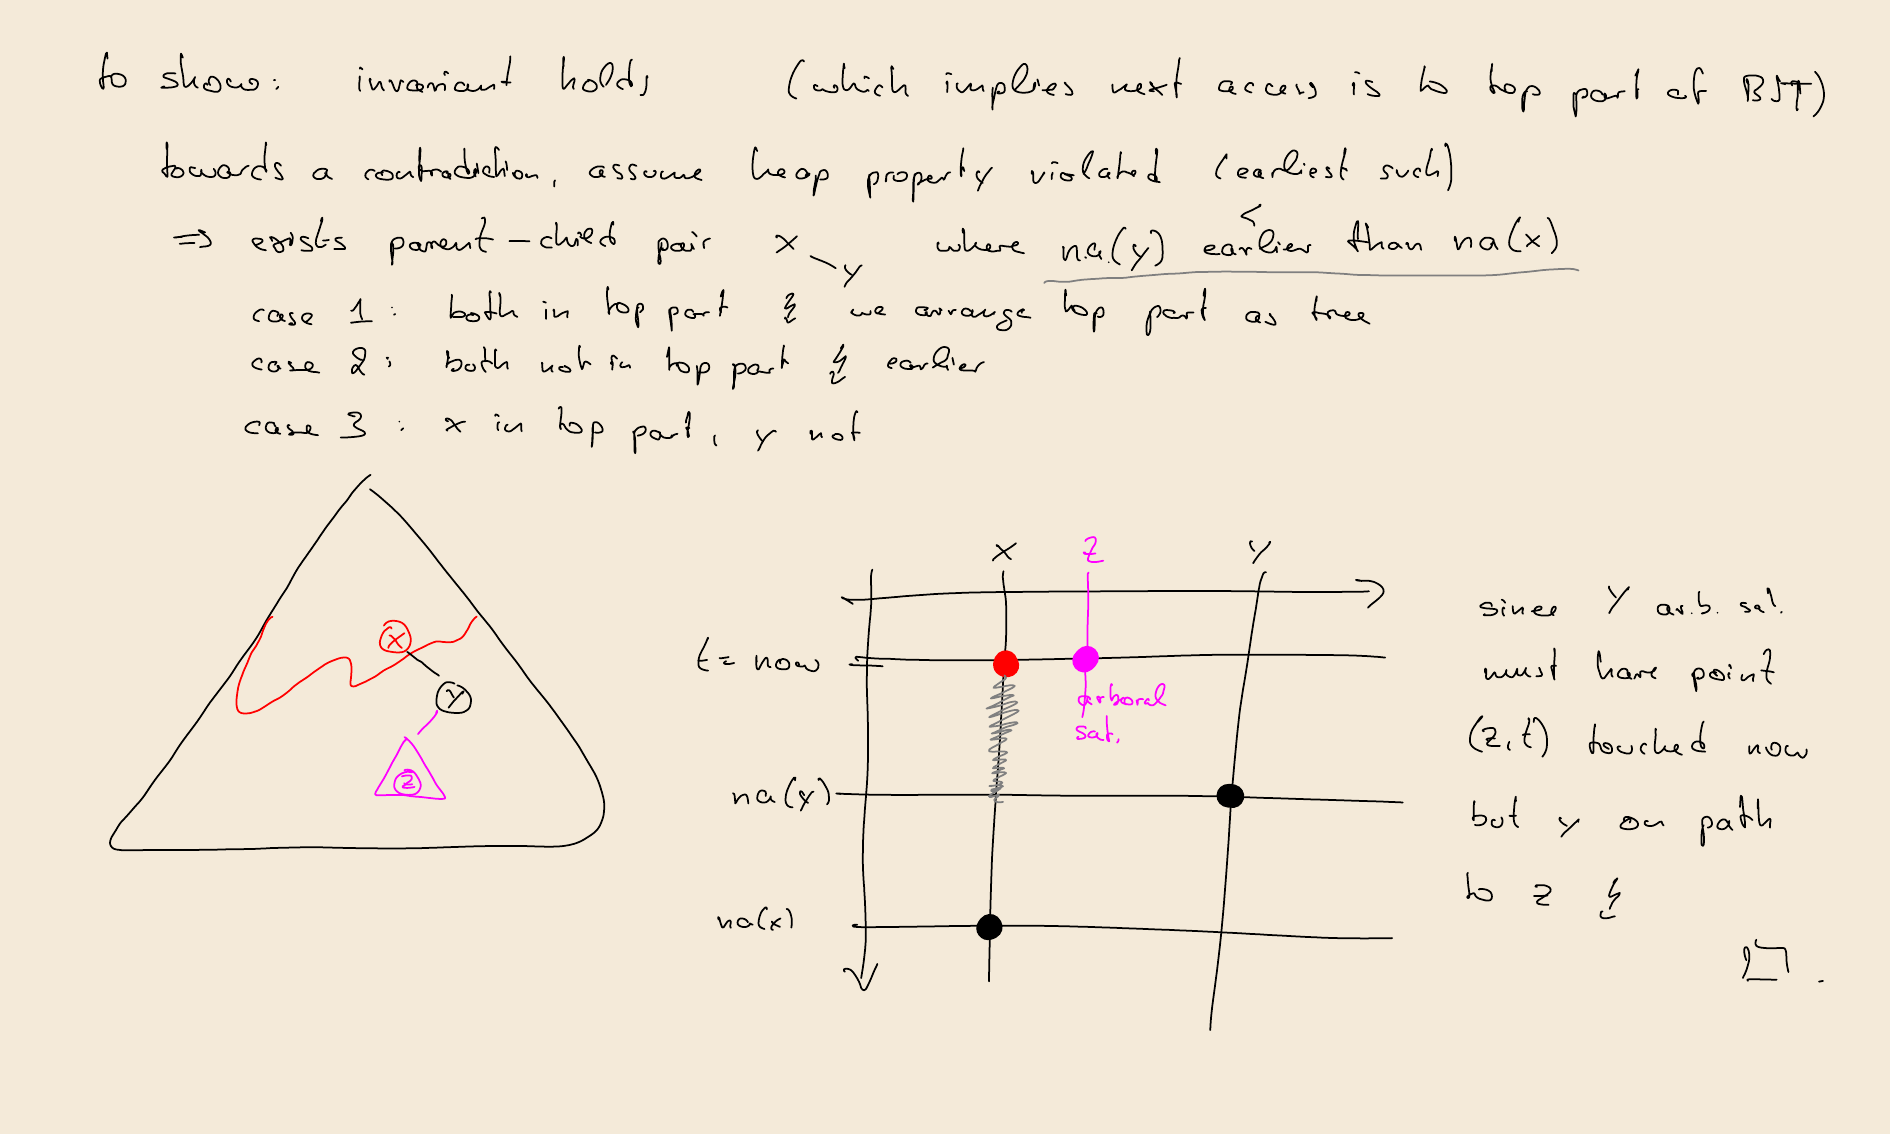 to show: invariant holds (which implies next access is to top part of BST)
towards a contradiction, assume heap property violated (earliest such)
<
⇒ exists parent-child pair x y where n.a.(y) earlier than na(x)
case 1: both in top part ↯ we arrange top part as tree
case 2: both not in top part ↯ earlier
case 3: x in top part, y not
x
y
z
x z y
t = now
arboral
sat.
na(y)
na(x)
since Y arb. sat.
must have point
(z,t) touched now
but y on path
to z ↯